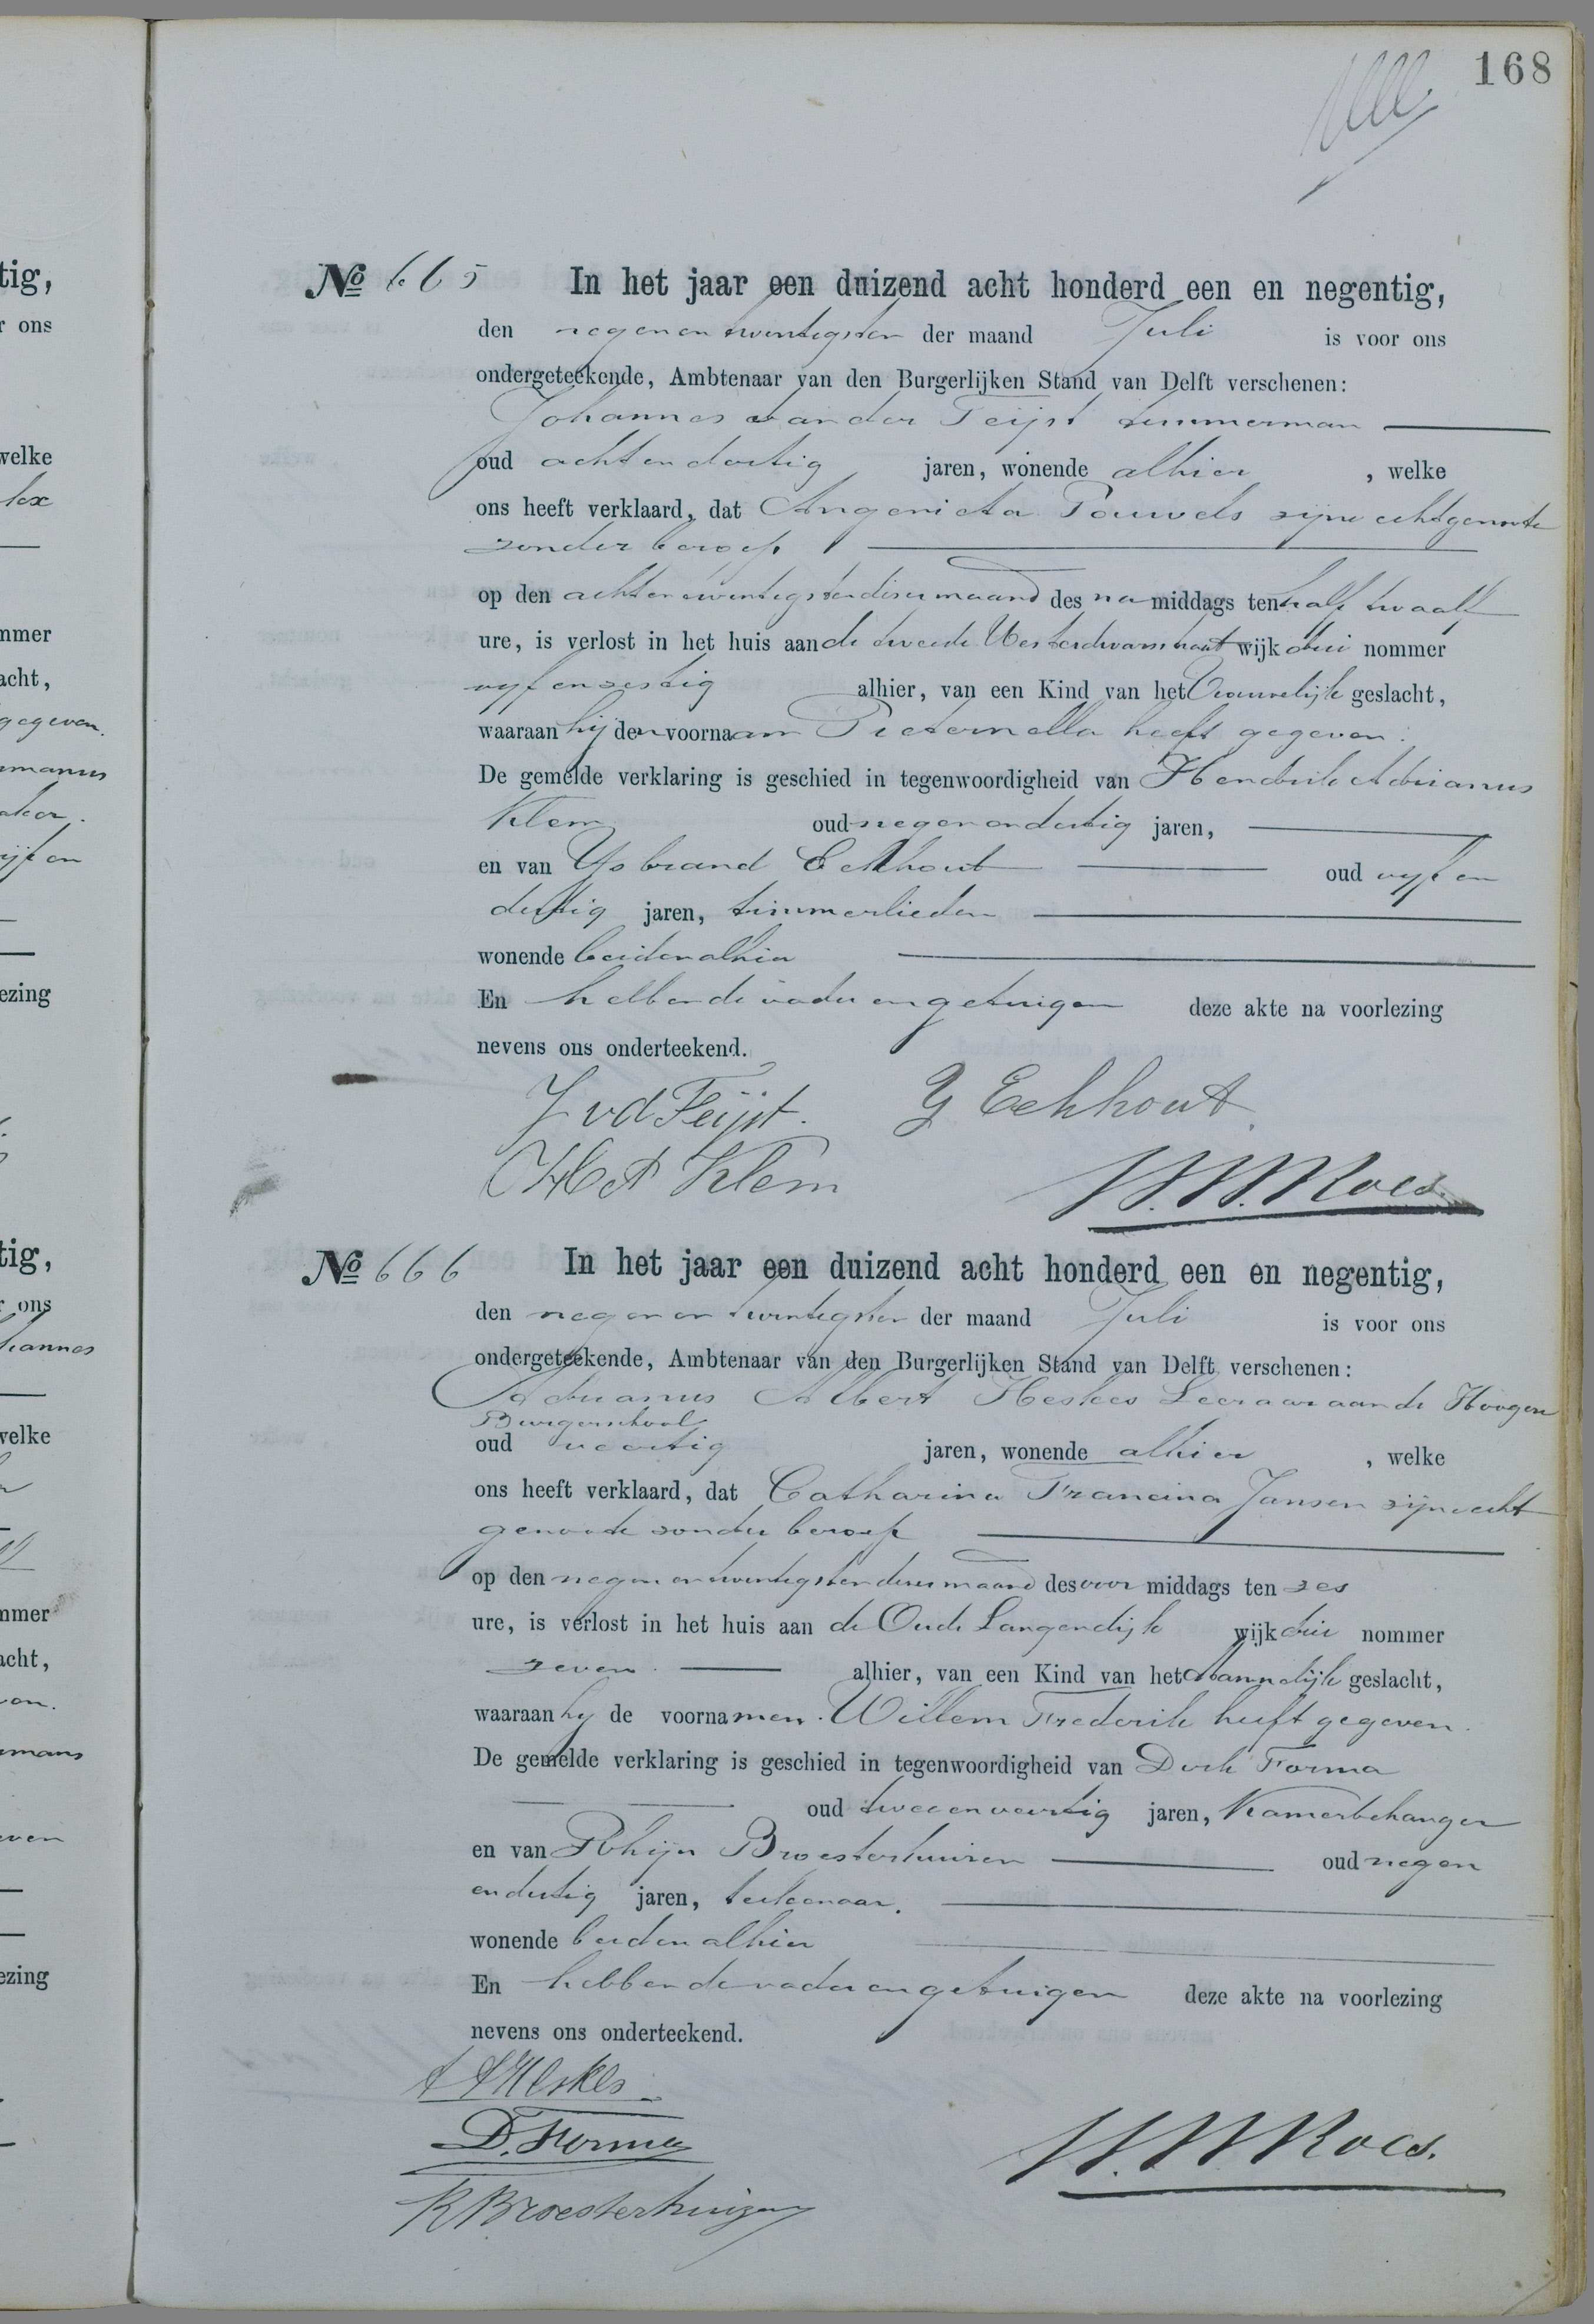 168
tig,
r ons
welke
mmer
acht,
gegeven.
ezing
tig,
r ons
hannes
welke
mmer
acht,
ezing
No 665 In het jaar een duizend acht honderd een en negentig,
den negenentwintigsten der maand Juli is voor ons
ondergeteekende, Ambtenaar van den Burgerlijken Stand van Delft verschenen:
Johannes van der Feijst timmerman
oud achtendertig jaren, wonende alhier , welke
ons heeft verklaard, dat Angenieta Pouwels zijne echtgenoote
zonder beroep
op den achtentwintigsten dezer maand des na middags ten half twaalf
ure, is verlost in het huis aan de tweede Westerdwarsstraat wijk drie nommer
vijfenzestig alhier, van een Kind van het Vrouwelijk geslacht,
waaraan hij den voornaam Pieternella heeft gegeven.
De gemelde verklaring is geschied in tegenwoordigheid van Hendrik Adrianus
Klem oud negenendertig jaren,
en van Ysbrand Eckhout oud vijf en
dertig jaren, timmerlieden
wonende beiden alhier
En hebben de vader en getuigen deze akte na voorlezing
nevens ons onderteekend.
J vd Feijst. Y Eckhout.
H A Klem W.W. Roes.
No 666 In het jaar een duizend acht honderd een en negentig,
den negenentwintigsten der maand Juli is voor ons
ondergeteekende, Ambtenaar van den Burgerlijken Stand van Delft verschenen:
Adrianus Albert Heskes Leeraar aan de Hoogere
Burgerschool
oud veertig jaren, wonende alhier , welke
ons heeft verklaard, dat Catharina Francina Jansen zijne echt
genoote zonder beroep
op den negenentwintigsten dezer maand des voor middags ten zes
ure, is verlost in het huis aan de Oude Langendijk wijk drie nommer
zeven. alhier, van een Kind van het Mannelijk geslacht,
waaraan hij de voornamen Willem Frederik heeft gegeven.
De gemelde verklaring is geschied in tegenwoordigheid van Dirk Forma
oud tweeenveertig jaren, Kamerbehanger
en van Rhijn Broesterhuizen oud negen
endertig jaren, teekenaar.
wonende beiden alhier
En hebben de vader en getuigen deze akte na voorlezing
nevens ons onderteekend.
A A Heskes
D. Forma W.W. Roes.
R Broesterhuizen